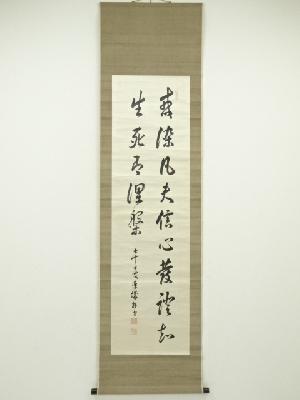 惑染凡夫信心發證知
生死即涅槃